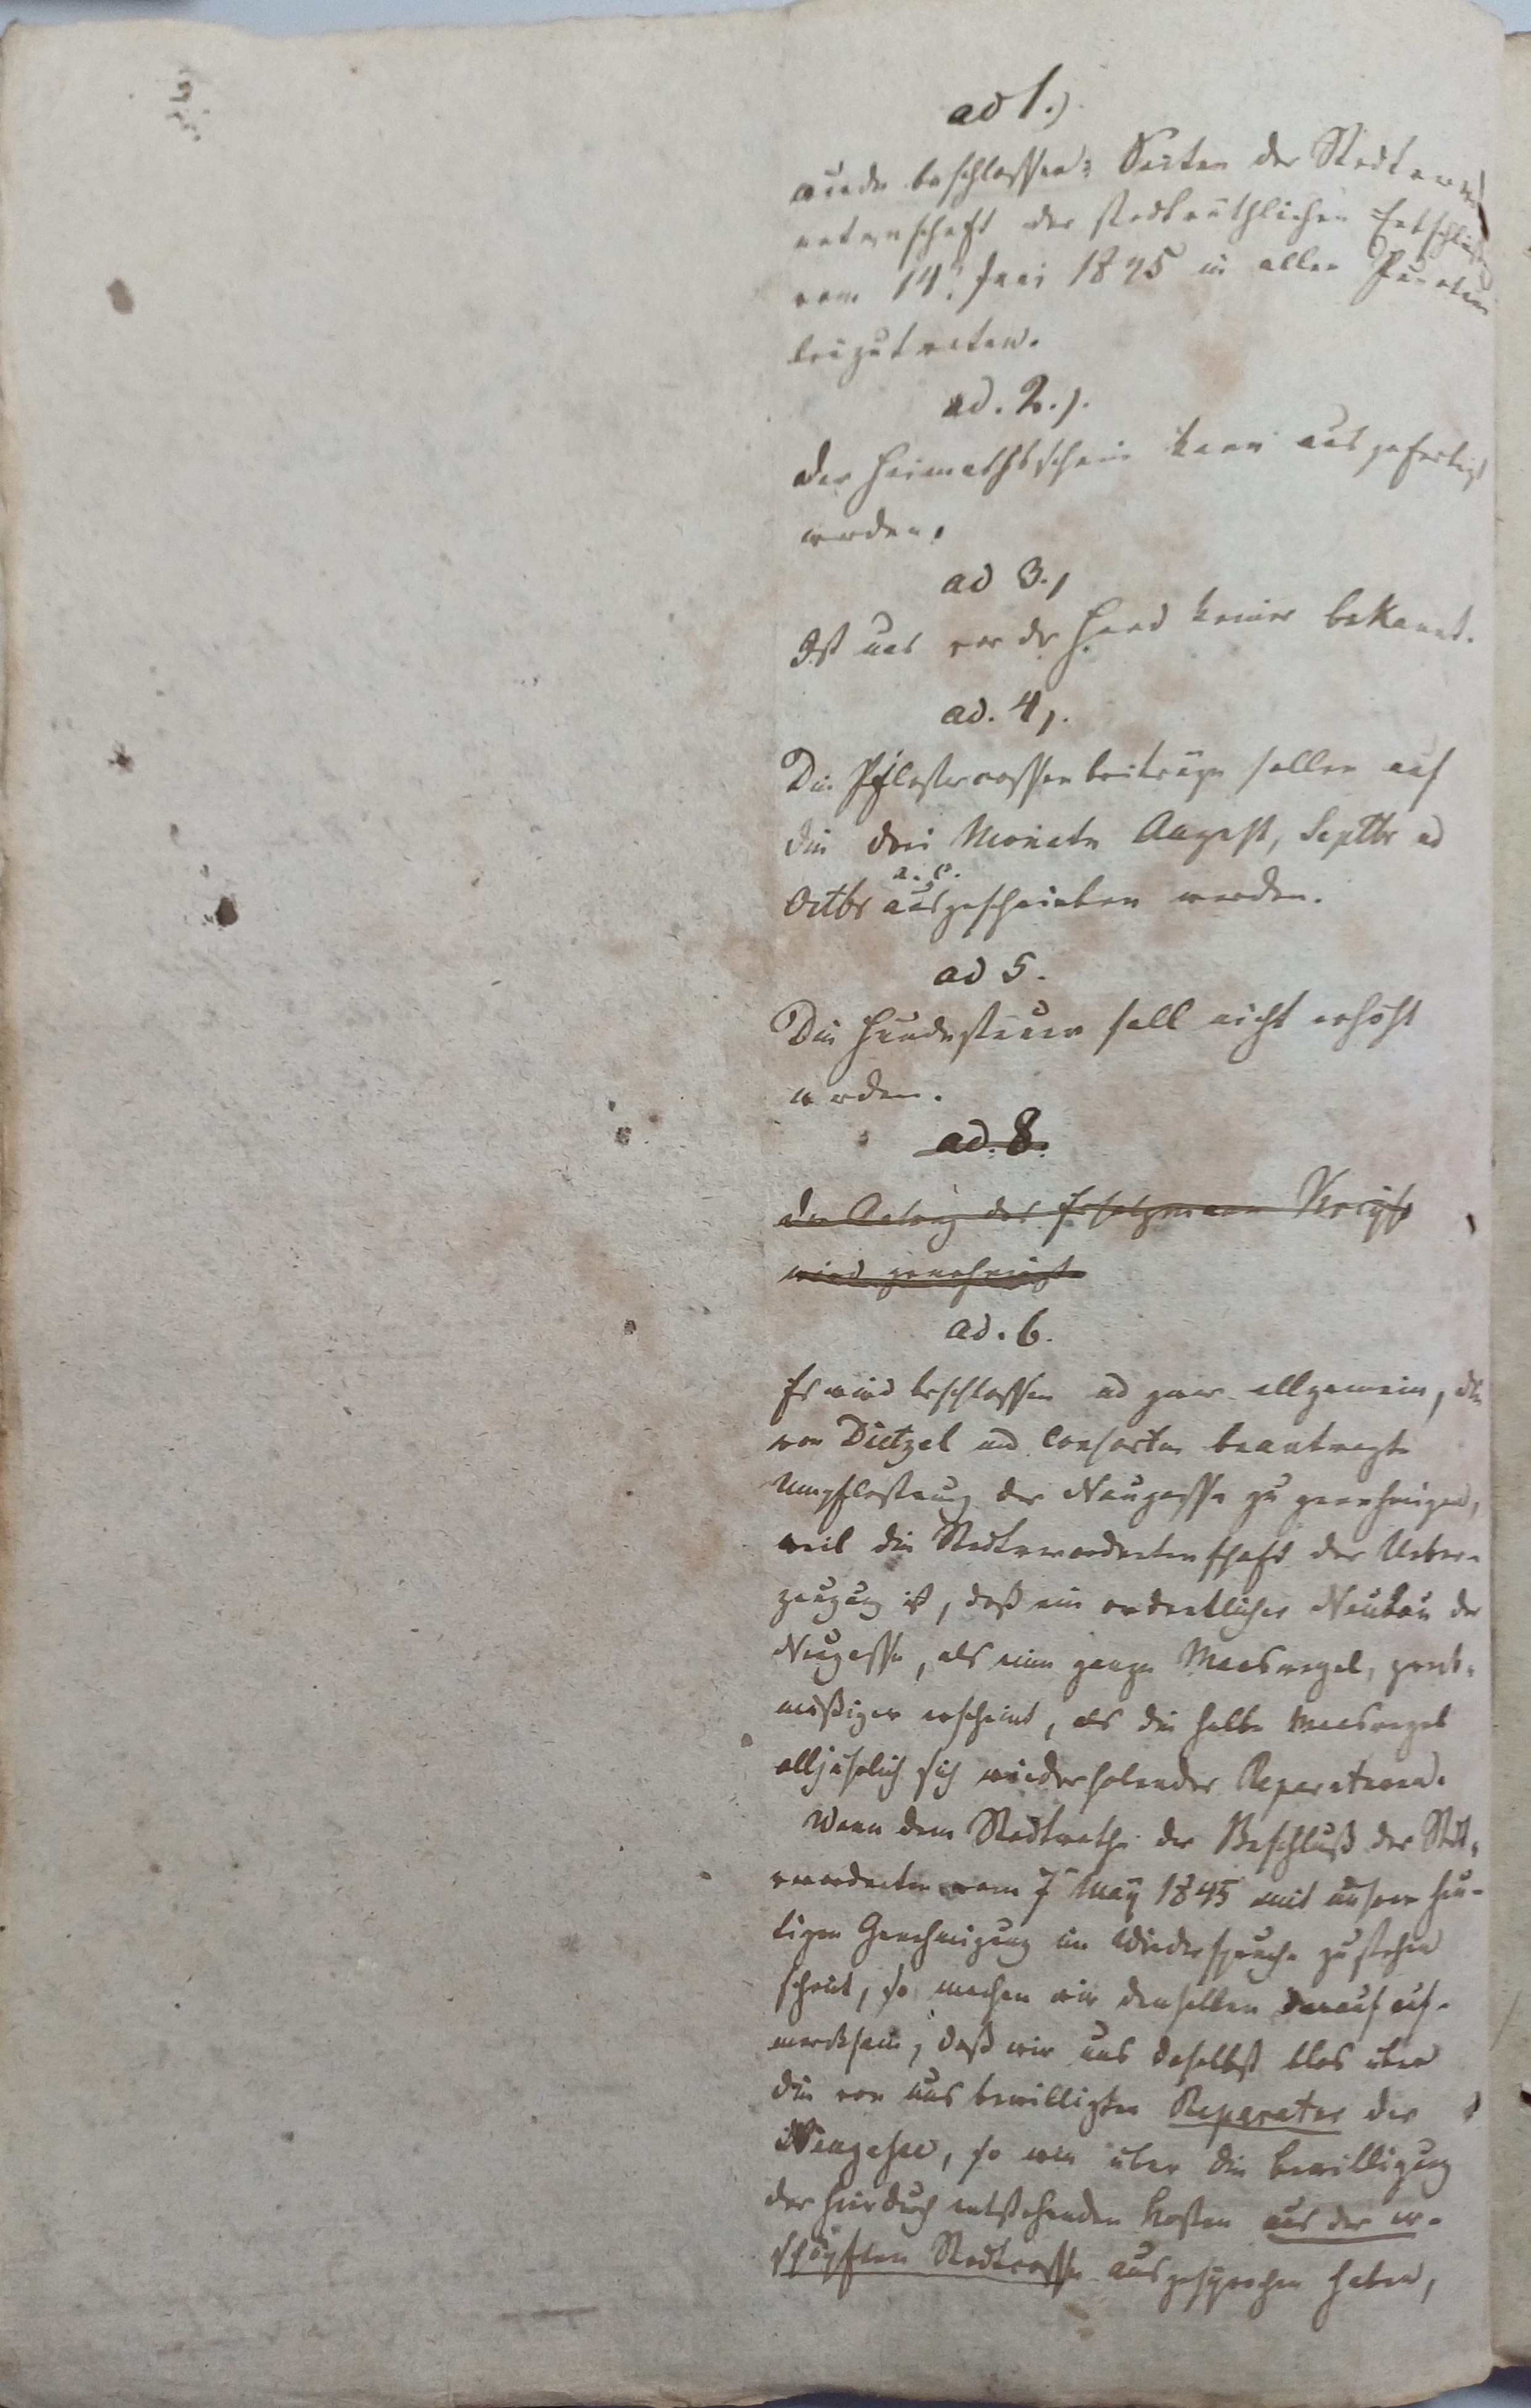 ad 1.)
wurde beschlossen: Seiten der Stadtverord
netenschaft der stadträthlichen Entschließ
vom 14. Juni 1845 in allen Puncten
beizutreten.
ad. 2.).
der Heimathsschein kann ausgefertigt
werden.
ad 3.,
Ist uns vor der Hand keiner bekannt.
ad. 4,.
Die Pflastercassenbeiträge sollen auf
die drei Monate August, Septbr ud
a. c.
Octbr ausgeschrieben werden.
ad 5.
Die Hundesteuer soll nicht erhöht
werden.
ad. 8.
der Antrag des Ersatzmann
wird genehmigt.
ad. 6.
Es wird beschlossen ud zwar allgemein, die
von Dietzel und Consorten beantragte
Umpflasterung der Neugasse zu genehmigen,
weil die Stadtverordnetenschaft der Ueber-
zeugung ist, daß ein ordentlicher Neubau der
Neugasse, als eine ganze Maasregel, zweck-
mäßiger erscheint, als die halbe Maasregel
alljährlich sich wiederholender Reparaturen.
Wenn dem Stadtrathe der Beschluß der Stdt-
verordneten vom 7 May 1845 mit unserer heu-
tigen Genehmigung im Wiederspruche zu stehen
scheint, so machen wir denselben darauf auf-
merksam, daß wir uns daselbst blos über
die von uns bewilligten Reparatur der
Neugasse, so wie über die Bewilligung
der hierdurch entstehenden Kosten aus der er-
schöpften Stadtcasse ausgesprochen haben,